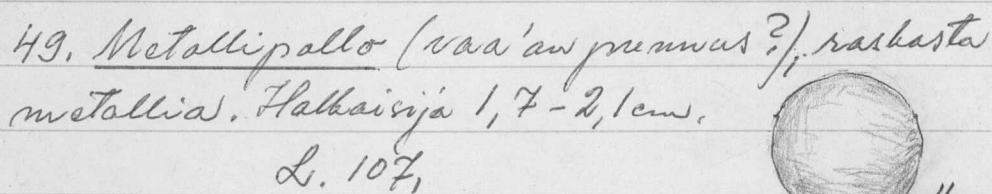 49. Metallipallo (vaa'an punnus?), raskasta
metallia. Halkaisija 1,7 - 2,1 cm.
L. 107,